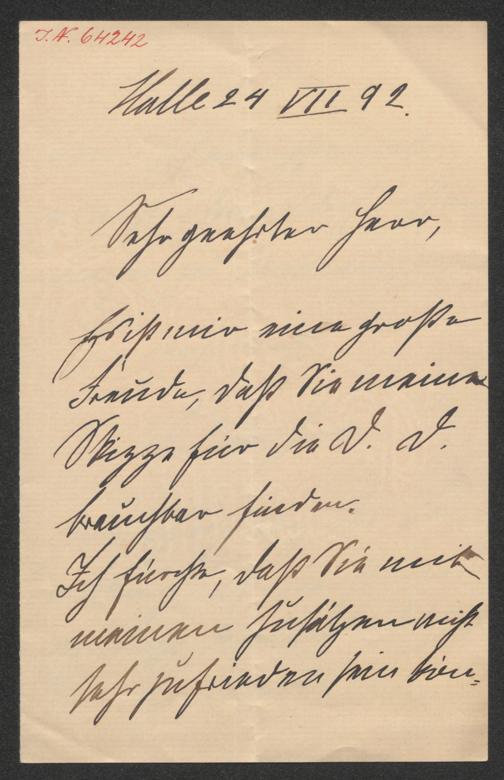 J.N. 64242
Halle 24 VII 92.
Sehr geehrter Herr,
Es ist mir eine große
Freude, daß Sie meine
Skizze für die D. D.
brauchbar finden.
Ich fürchte, daß Sie mit
meinen Zusätzen nicht
sehr zufrieden sein kön-